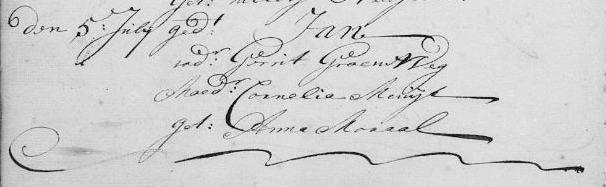 den 5: July ged:t Jan
vad:r Gerrit Groen Weg
Moed:r Cornelia
get: Anna Moraal